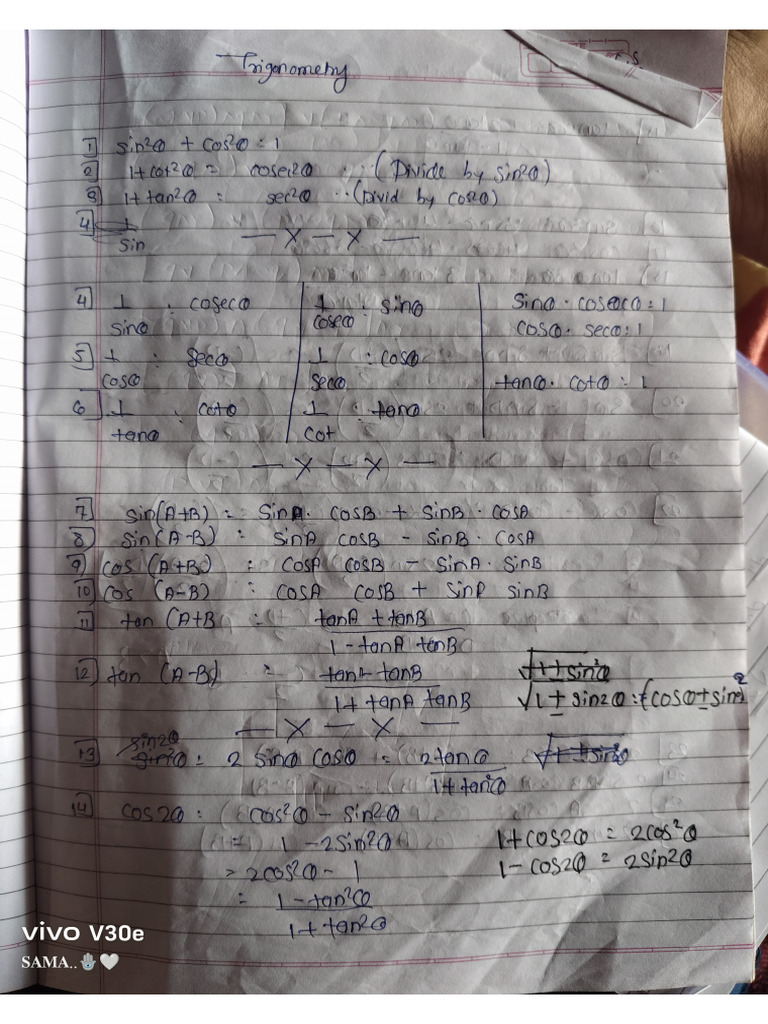 Trigonometry
1 sin²θ + cos²θ = 1
2 1+cot²θ = cosec²θ ...(Divide by sin²θ)
3 1+tan²θ = sec²θ ..(Divid by cos²θ)
4 1
sin — X — X —
4] 1 : cosecθ 1 : sinθ sinθ · cosecθ = 1
sinθ cosecθ cosθ · secθ = 1
5] 1 : secθ 1 : cosθ
cosθ secθ tanθ · cotθ = 1
6] 1 : cotθ 1 : tanθ
tanθ cot
— X — X —
7] sin(A+B) = SinA · cosB + sinB · cosA
8] sin(A-B) = sinA cosB - sinB · cosA
9) cos (A+B) = cosA cosB - sinA · sinB
10) cos (A-B) = cosA cosB + sin sinB
11 tan (A+B = tanA + tanB
1 - tanA tanB
12) tan (A-B) = tanA - tanB
1 + tanA tanB √1 ± sin2θ = (cosθ ± sinθ)²
— X — X —
13] sin2θ = 2 sinθ cosθ = 2tanθ
1+tan²θ
14 cos2θ = cos²θ - sin²θ
= 1 - 2sin²θ 1+cos2θ = 2cos²θ
= 2cos²θ - 1 1 - cos2θ = 2sin²θ
= 1 - tan²θ
1 + tan²θ
vivo V30e
SAMA..🖐🏻🤍